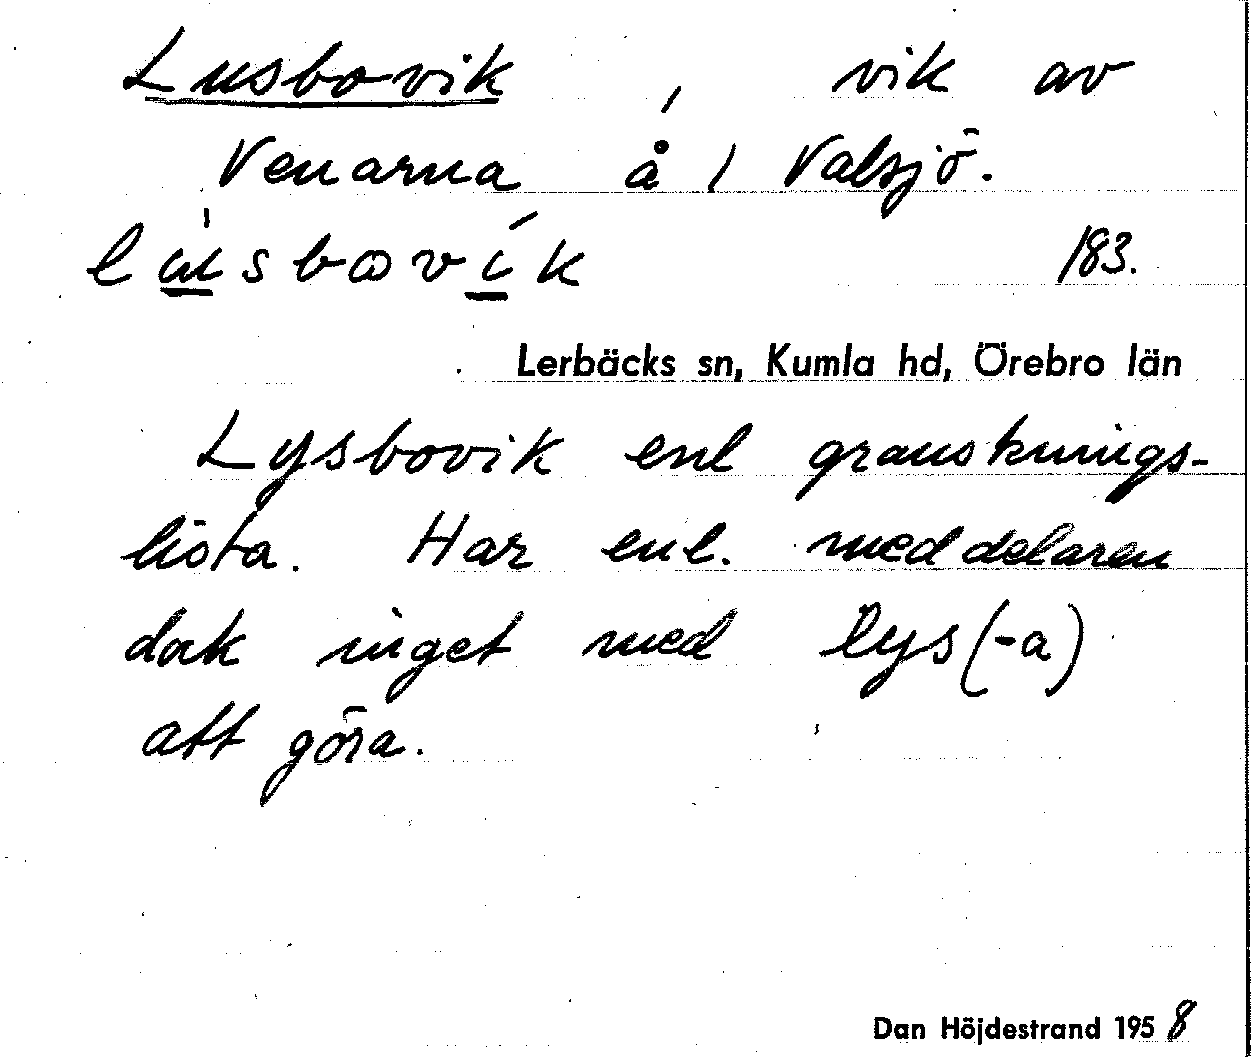 Lusbovik, vik av
Venarna å / Valsjö.
lúsbovík 183.
Lerbäcks sn, Kumla hd, Örebro län
Lysbovik enl gransknings-
lista. Har enl. meddelaren
dock inget med lys(-a)
att göra.
Dan Höjdestrand 1958